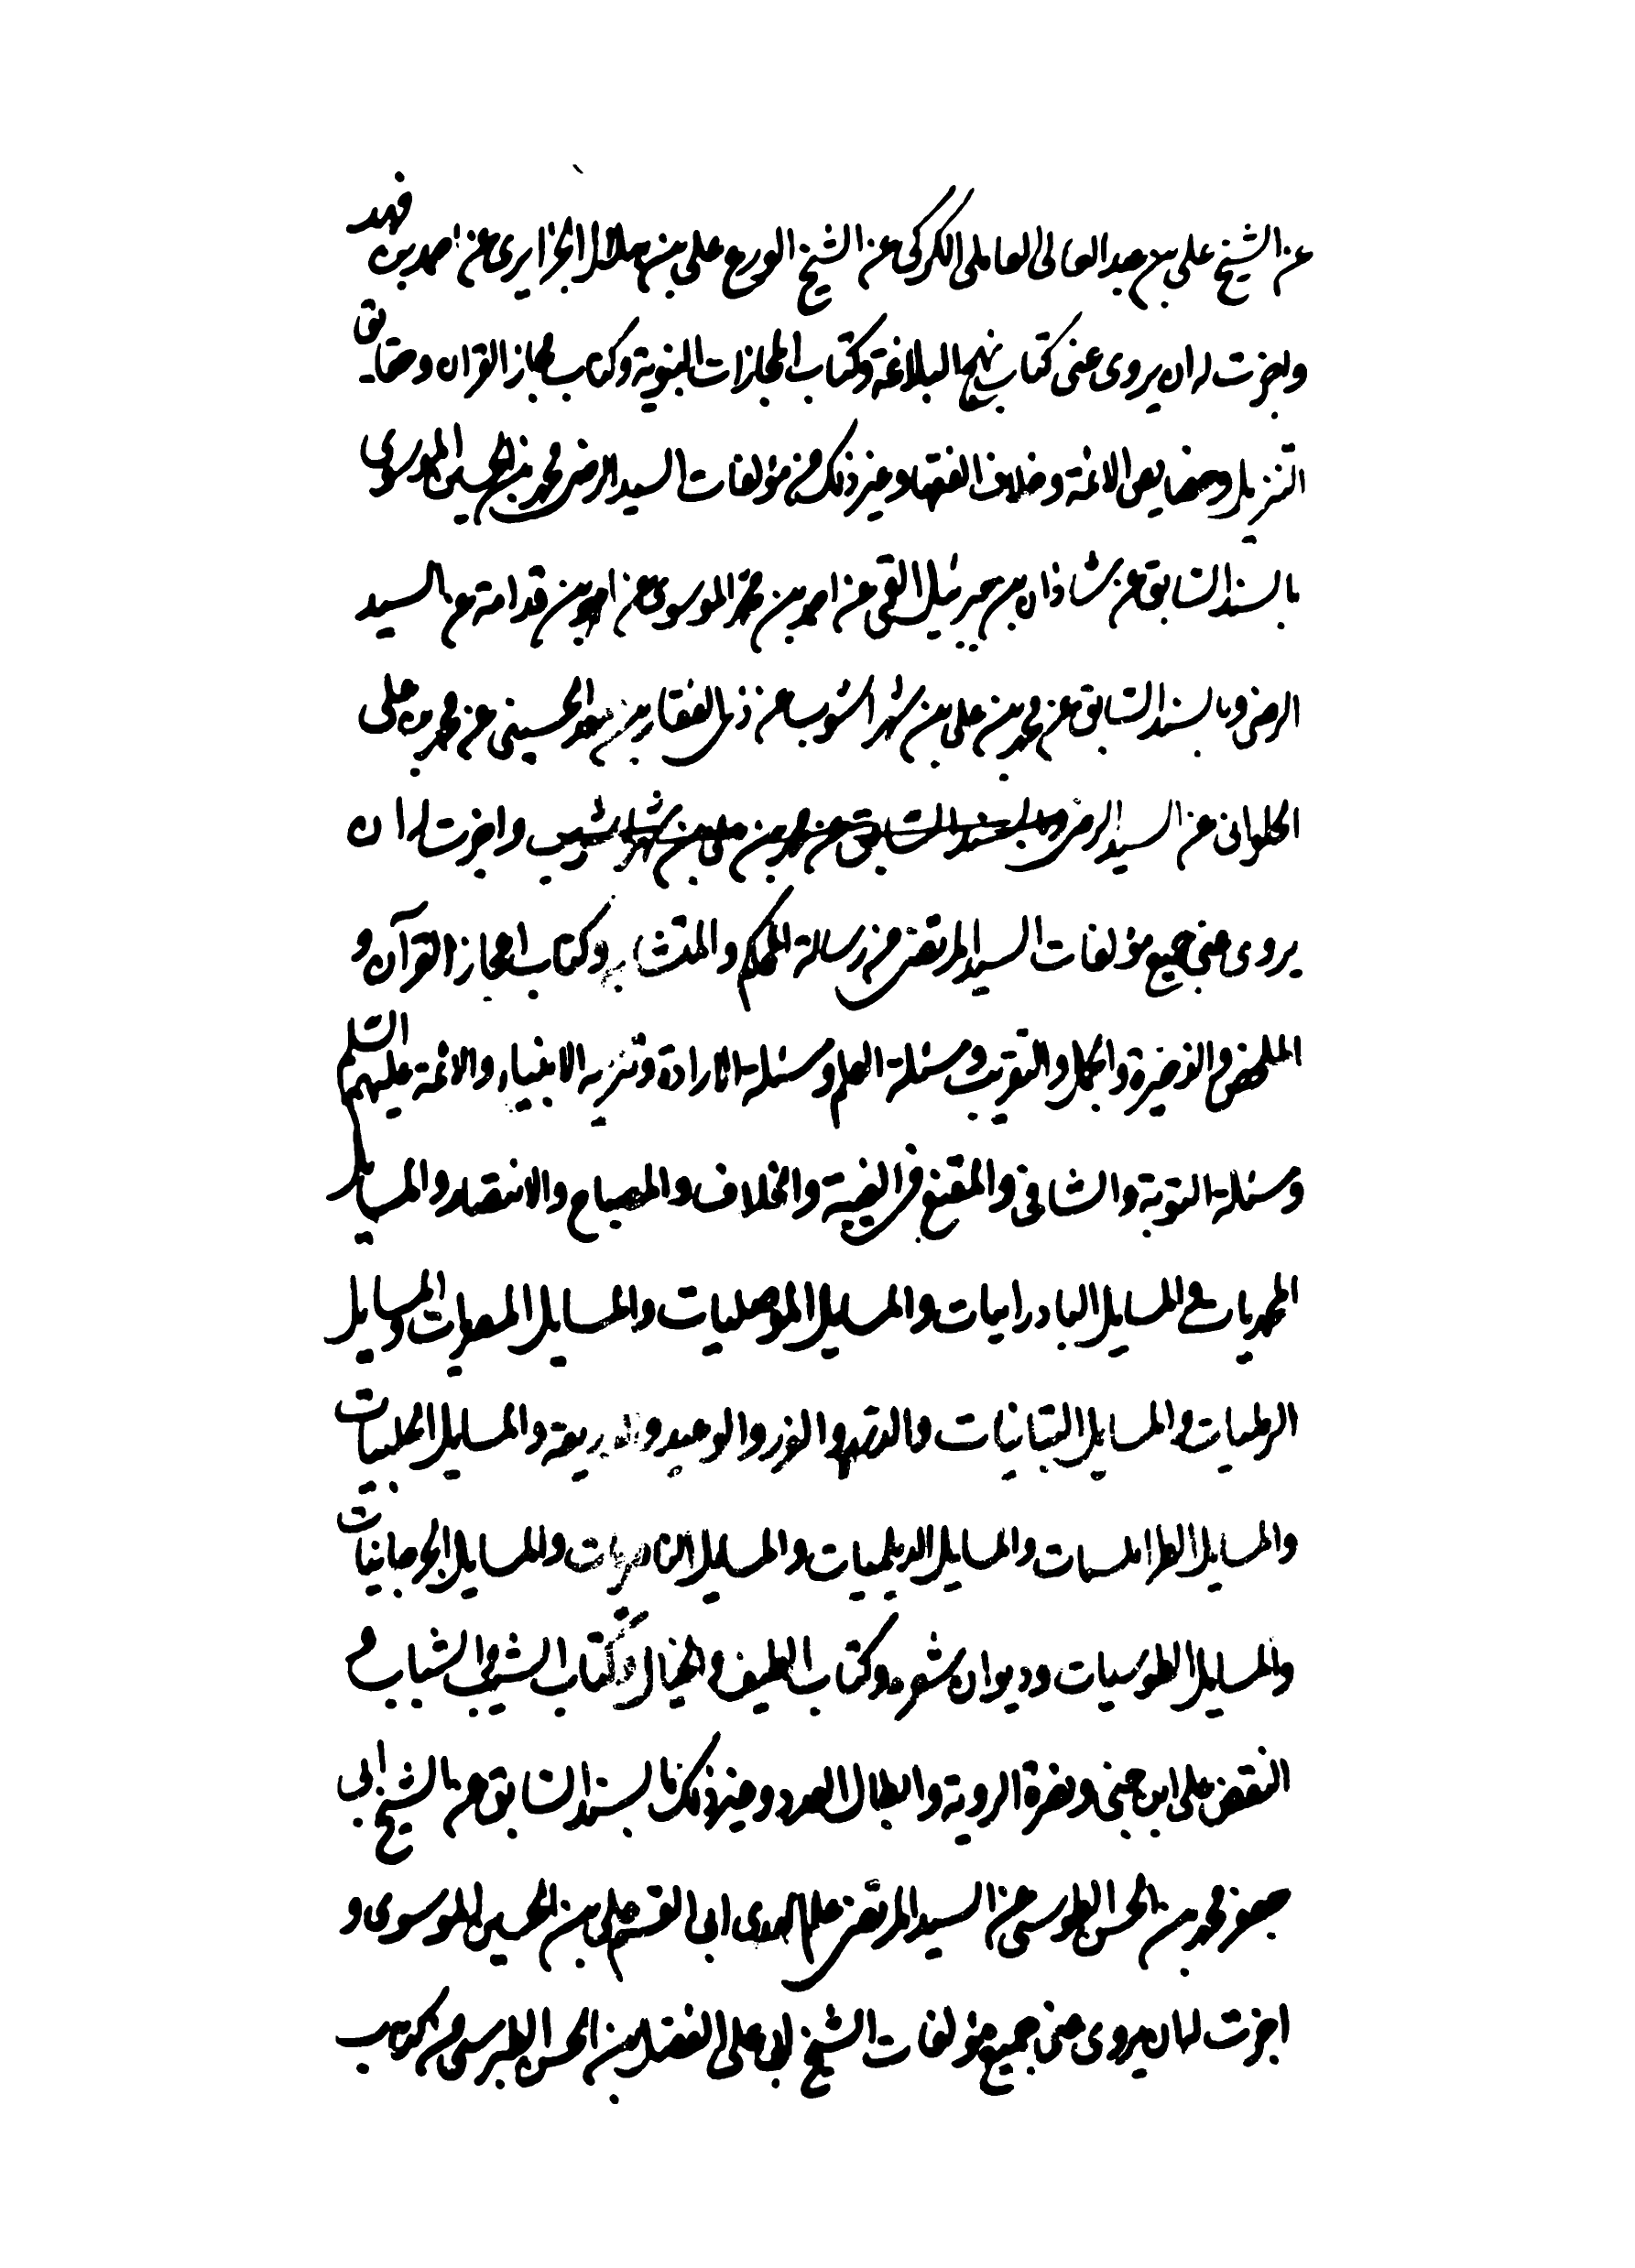 عن الشيخ على بن عبد العالى العاملى الكركى عن الشيخ الورع على بن هلال الجزايرى عن احمد بن فهد
واجزت له ان يروى عنى كتاب نهج البلاغة وكتاب المجازات النبوية وكتاب مجاز القران وحقايق
التنزيل وخصايص الائمة وخلاف الفقهاء وغير ذلك من مؤلفات السيد الرضى محمد بن الحسين الموسوى
بالسند السابق عن شاذان بن جبرئيل القمى عن احمد بن محمد الموسوى عن احمد بن قدامة عن السيد
الرضى وبالسند السابق عن محمد بن على بن شهر اشوب عن ذى الفقار بن معبد الحسينى عن محمد بن على
الحلوانى عن السيد الرضى وبالسند السابق عن محمد بن على بن شهر اشوب واجزت له ان
يروى عنى جميع مؤلفات السيد المرتضى من رسالة المحكم والمتشابه وكتاب اعجاز القرآن و
الملخص والذخيرة والجمل والتقريب ومسئلة العلم ومسئلة الارادة وتنزيه الانبياء والائمة عليهم السلم
ومسئلة التوبة والشافى والمقنع فى الغيبة والخلاف والمصباح والانتصار والمسايل
المحمديات والمسايل البادرايات والمسايل الموصليات والمسايل المصريات والمسايل
الرمليات والمسايل التبانيات والغرر والوعيد والذريعة والمسايل الحلبيات
والمسايل الطرابلسيات والمسايل الديلميات والمسايل الناصريات والمسايل الجرجانيات
والمسايل الطوسيات وديوان شعره وكتاب الطيف والخيال وكتاب الشيب والشباب و
النقض على ابن جنى ونصرة الروية وابطال العدد وغير ذلك بالسند السابق عن الشيخ ابى
جعفر محمد بن الحسن الطوسى عن السيد المرتضى علم الهدى ابى القسم على بن الحسين الموسوى و
اجزت له ان يروى عنى جميع مؤلفات الشيخ ابى على الفضل بن الحسن الطبرسى من كتاب